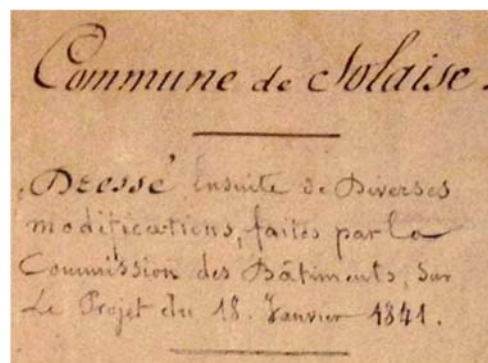 Commune de Solaise.
Dressé Ensuite de Diverses
modifications, faites par la
Commission des Bâtiments, Sur
Le Projet du 18. Janvier 1841.